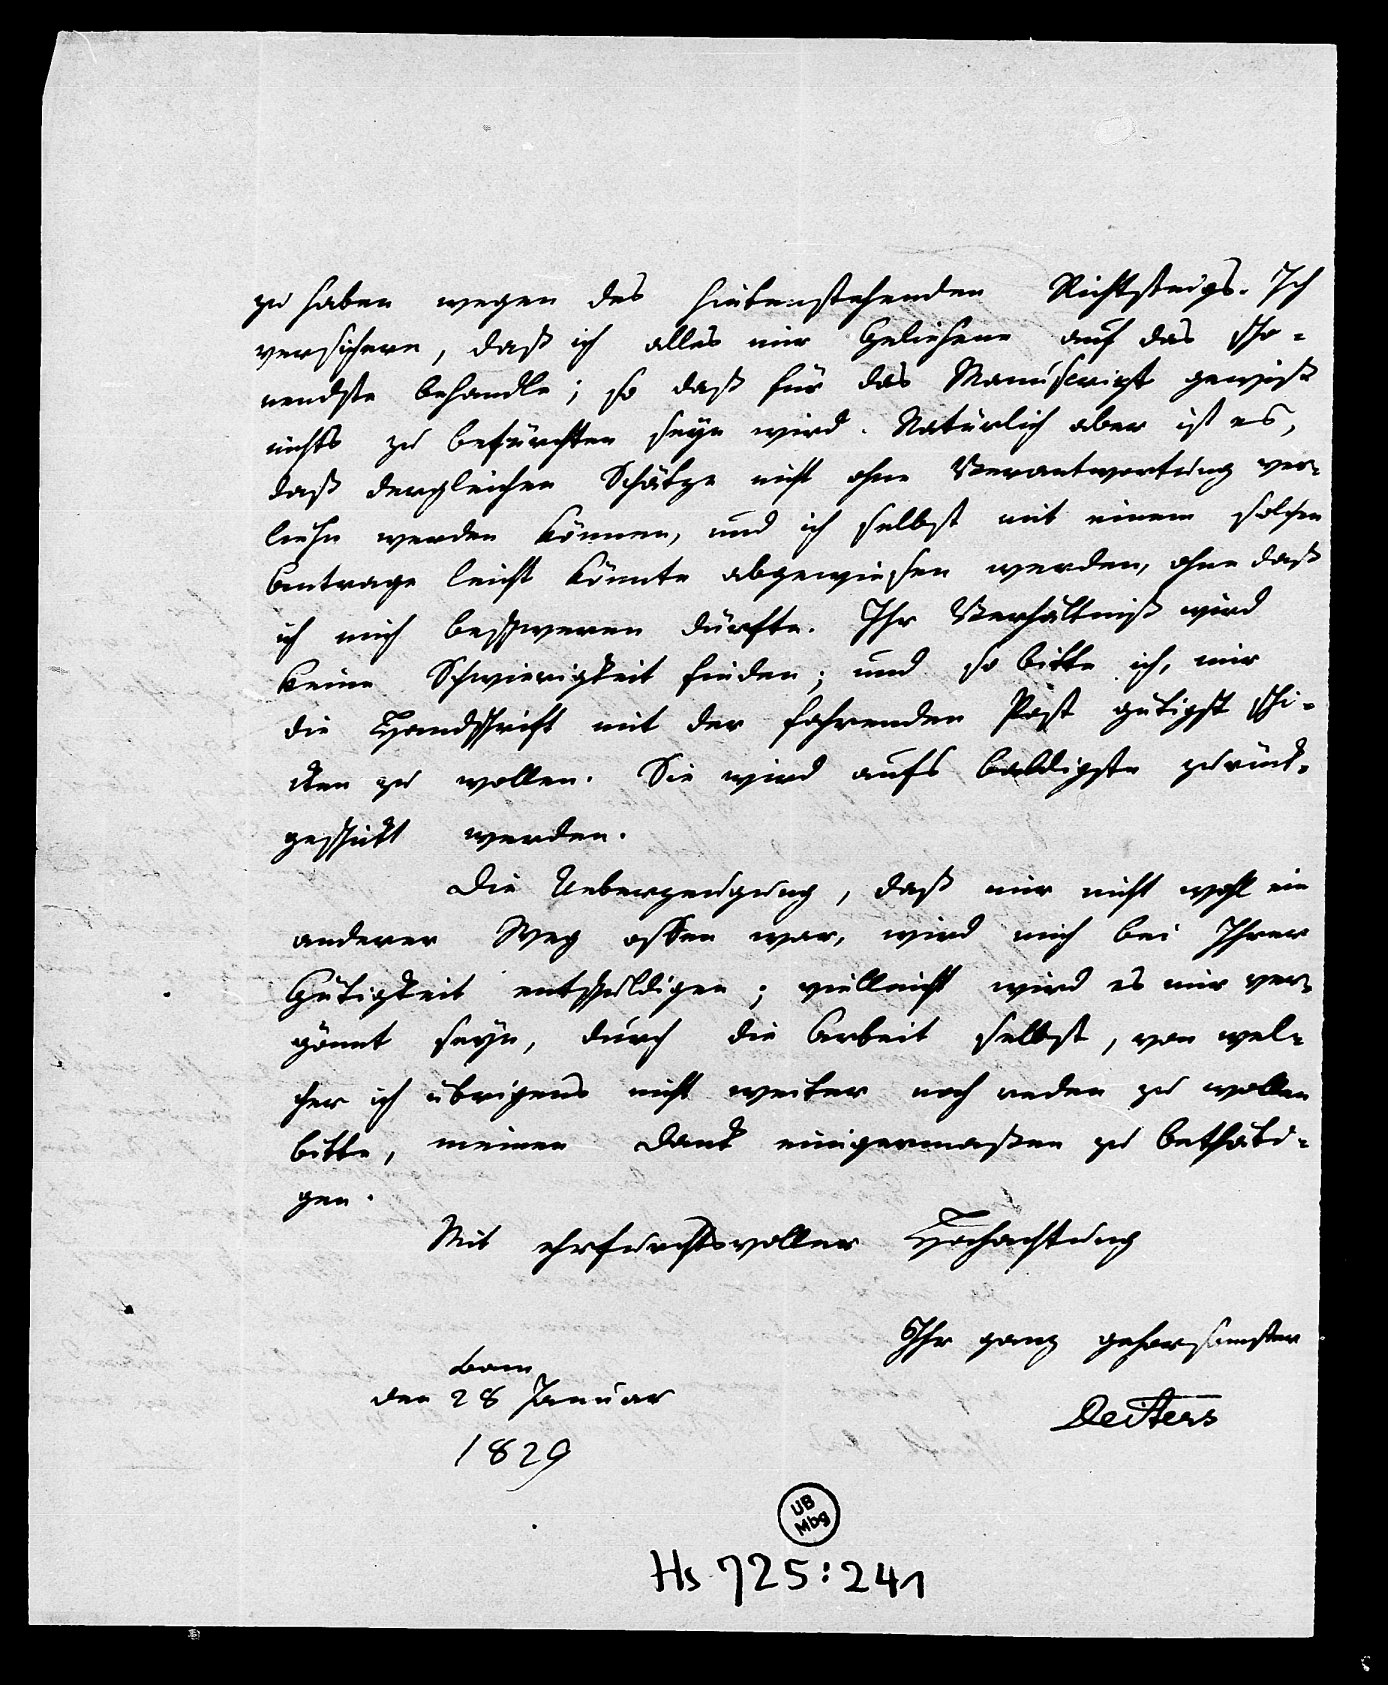 zu haben wegen des hintenstehenden Richtsteigs. Ich
versichere, daß ich alles mir Geliehene auf das scho-
nendste behandle; so daß für das Manuscript gewiß
nichts zu befürchten seyn wird. Natürlich aber ist es,
daß dergleichen Schätze nicht ohne Verantwortung ver-
liehn werden können, und ich selbst mit einem solchen
Antrage leicht könnte abgewiesen werden, ohne daß
ich mich beschweren dürfte. Ihr Verhältniß wird
keine Schwierigkeit finden; und so bitte ich, mir
die Handschrift mit der fahrenden Post gütigst schi-
cken zu wollen. Sie wird aufs baldigste zurück-
geschickt werden.
Die Ueberzeugung, daß mir nicht wohl ein
anderer Weg offen war, wird mich bei Ihrer
Gütigkeit entschuldigen; vielleicht wird es mir ver-
gönnt seyn, durch die Arbeit selbst, von wel-
cher ich übrigens nicht weiter noch reden zu wollen
bitte, meinen Dank einigermaßen zu bethäti-
gen.
Mit ehrfurchtsvoller Hochachtung
Ihr ganz gehorsamster
Bonn
den 28 Januar
Deiters
1829
UB
Mbg
Hs 725:241